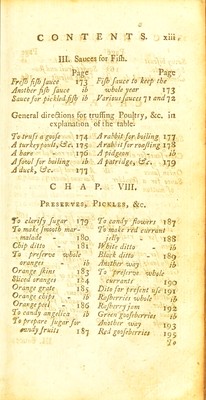 CONTENTS. xiii
III. Sauces for Fish.
Page
Fresh fish sauce 173
Another fish sauce ib
Sauce for pickled fish ib
Page
Fish sauce to keep the
whole year 173
Various sauces 71 and 72
General directions for trussing Poultry, &c. in
explanation of the table.
To truss a goose 174
A turkey poult, &c. 175
A hare - 176
A fowl for boiling ib
A duck, &c. 177
A rabbit for boiling 177
A rabbit for roasting 178
A pidgeon - ib
A patridge, &c. 139
CHAP. VIII.
PRESERVES, PICKLES, &c.
To clarify sugar 179
To make smooth mar-
malade - 180
Chip ditto - 181
To preserve whole
oranges - ib
Orange skins 183
Sliced oranges 184
Orange grate 185
Orange chips ib
Orange peel 186
To candy angelica ib
To prepare sugar for
candy fruits 187
To candy flowers 187
To make red currant
jelly - 188
White ditto - ib
Black ditto - 189
Another way ib
To preserve whole
currants 190
Ditto for present use 191
Rasberries whole ib
Rasberry jam 192
Green gooseberries ib
Another way 193
Red gooseberries 195
To